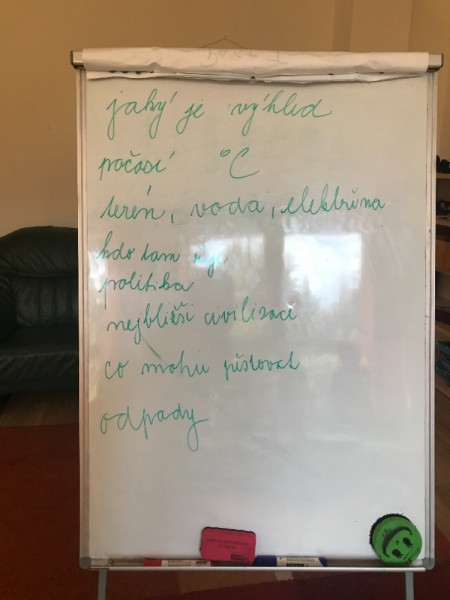 jaký je výhled
počasí °C
terén, voda, elektřina
kdo tam žije
politika
nejbližší civilizace
co mohu pěstovat
odpady